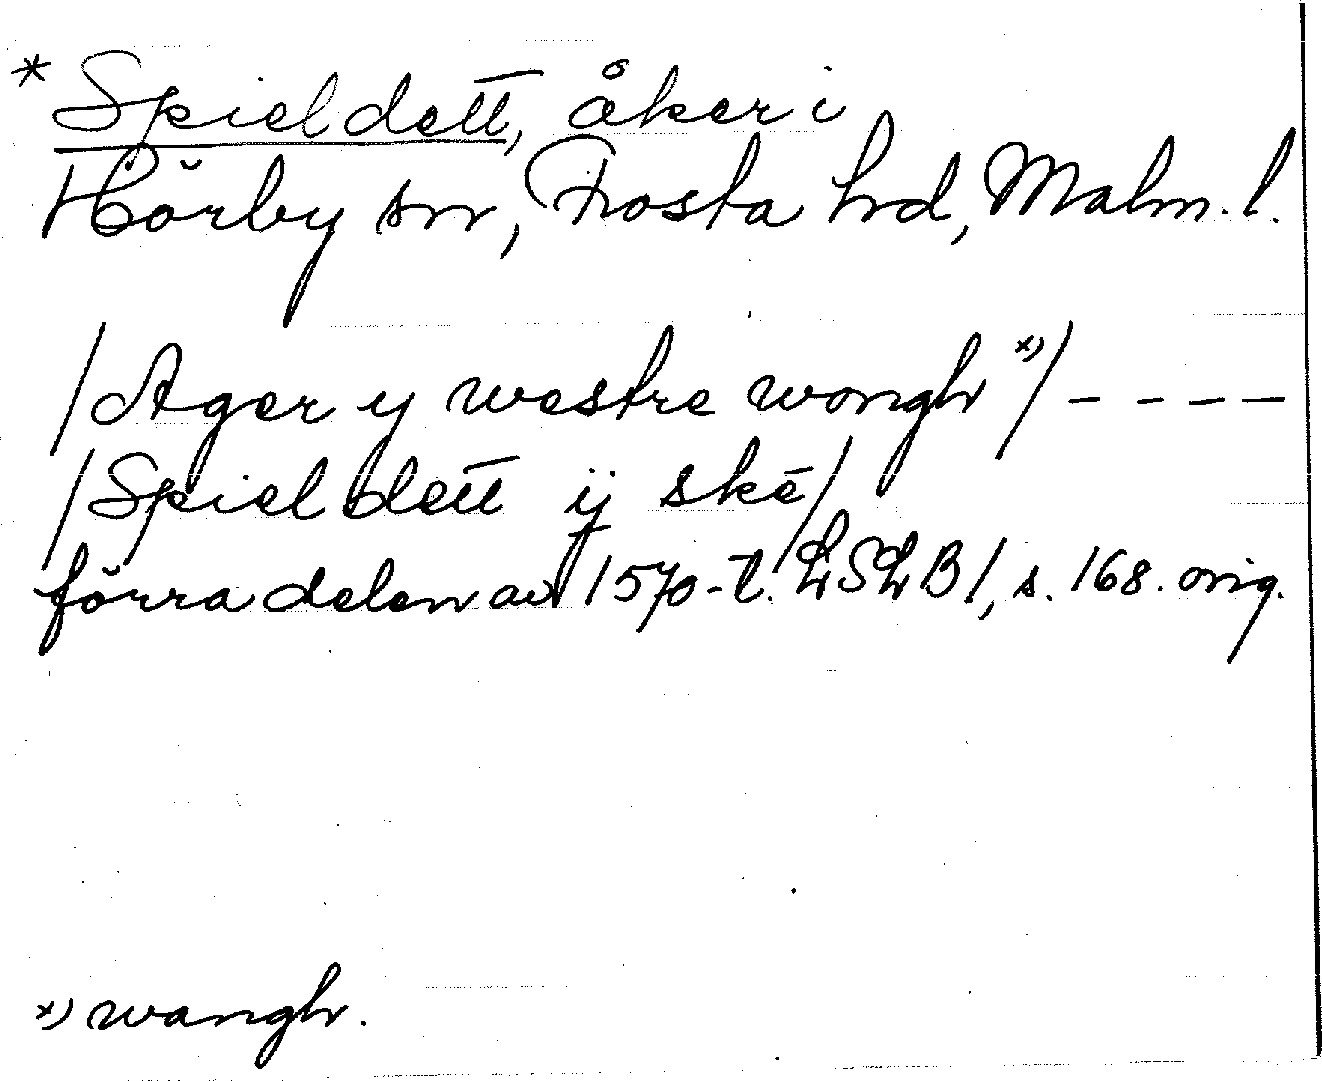 * Spieldett, åker i
Hörby sn, Frosta hd, Malm. l.
/Ager y westre wongh x)/ - - - -
/Spieldett ij skē/
förra delen av 1570-t. LSLB 1, s. 168. orig.
x) wangh.